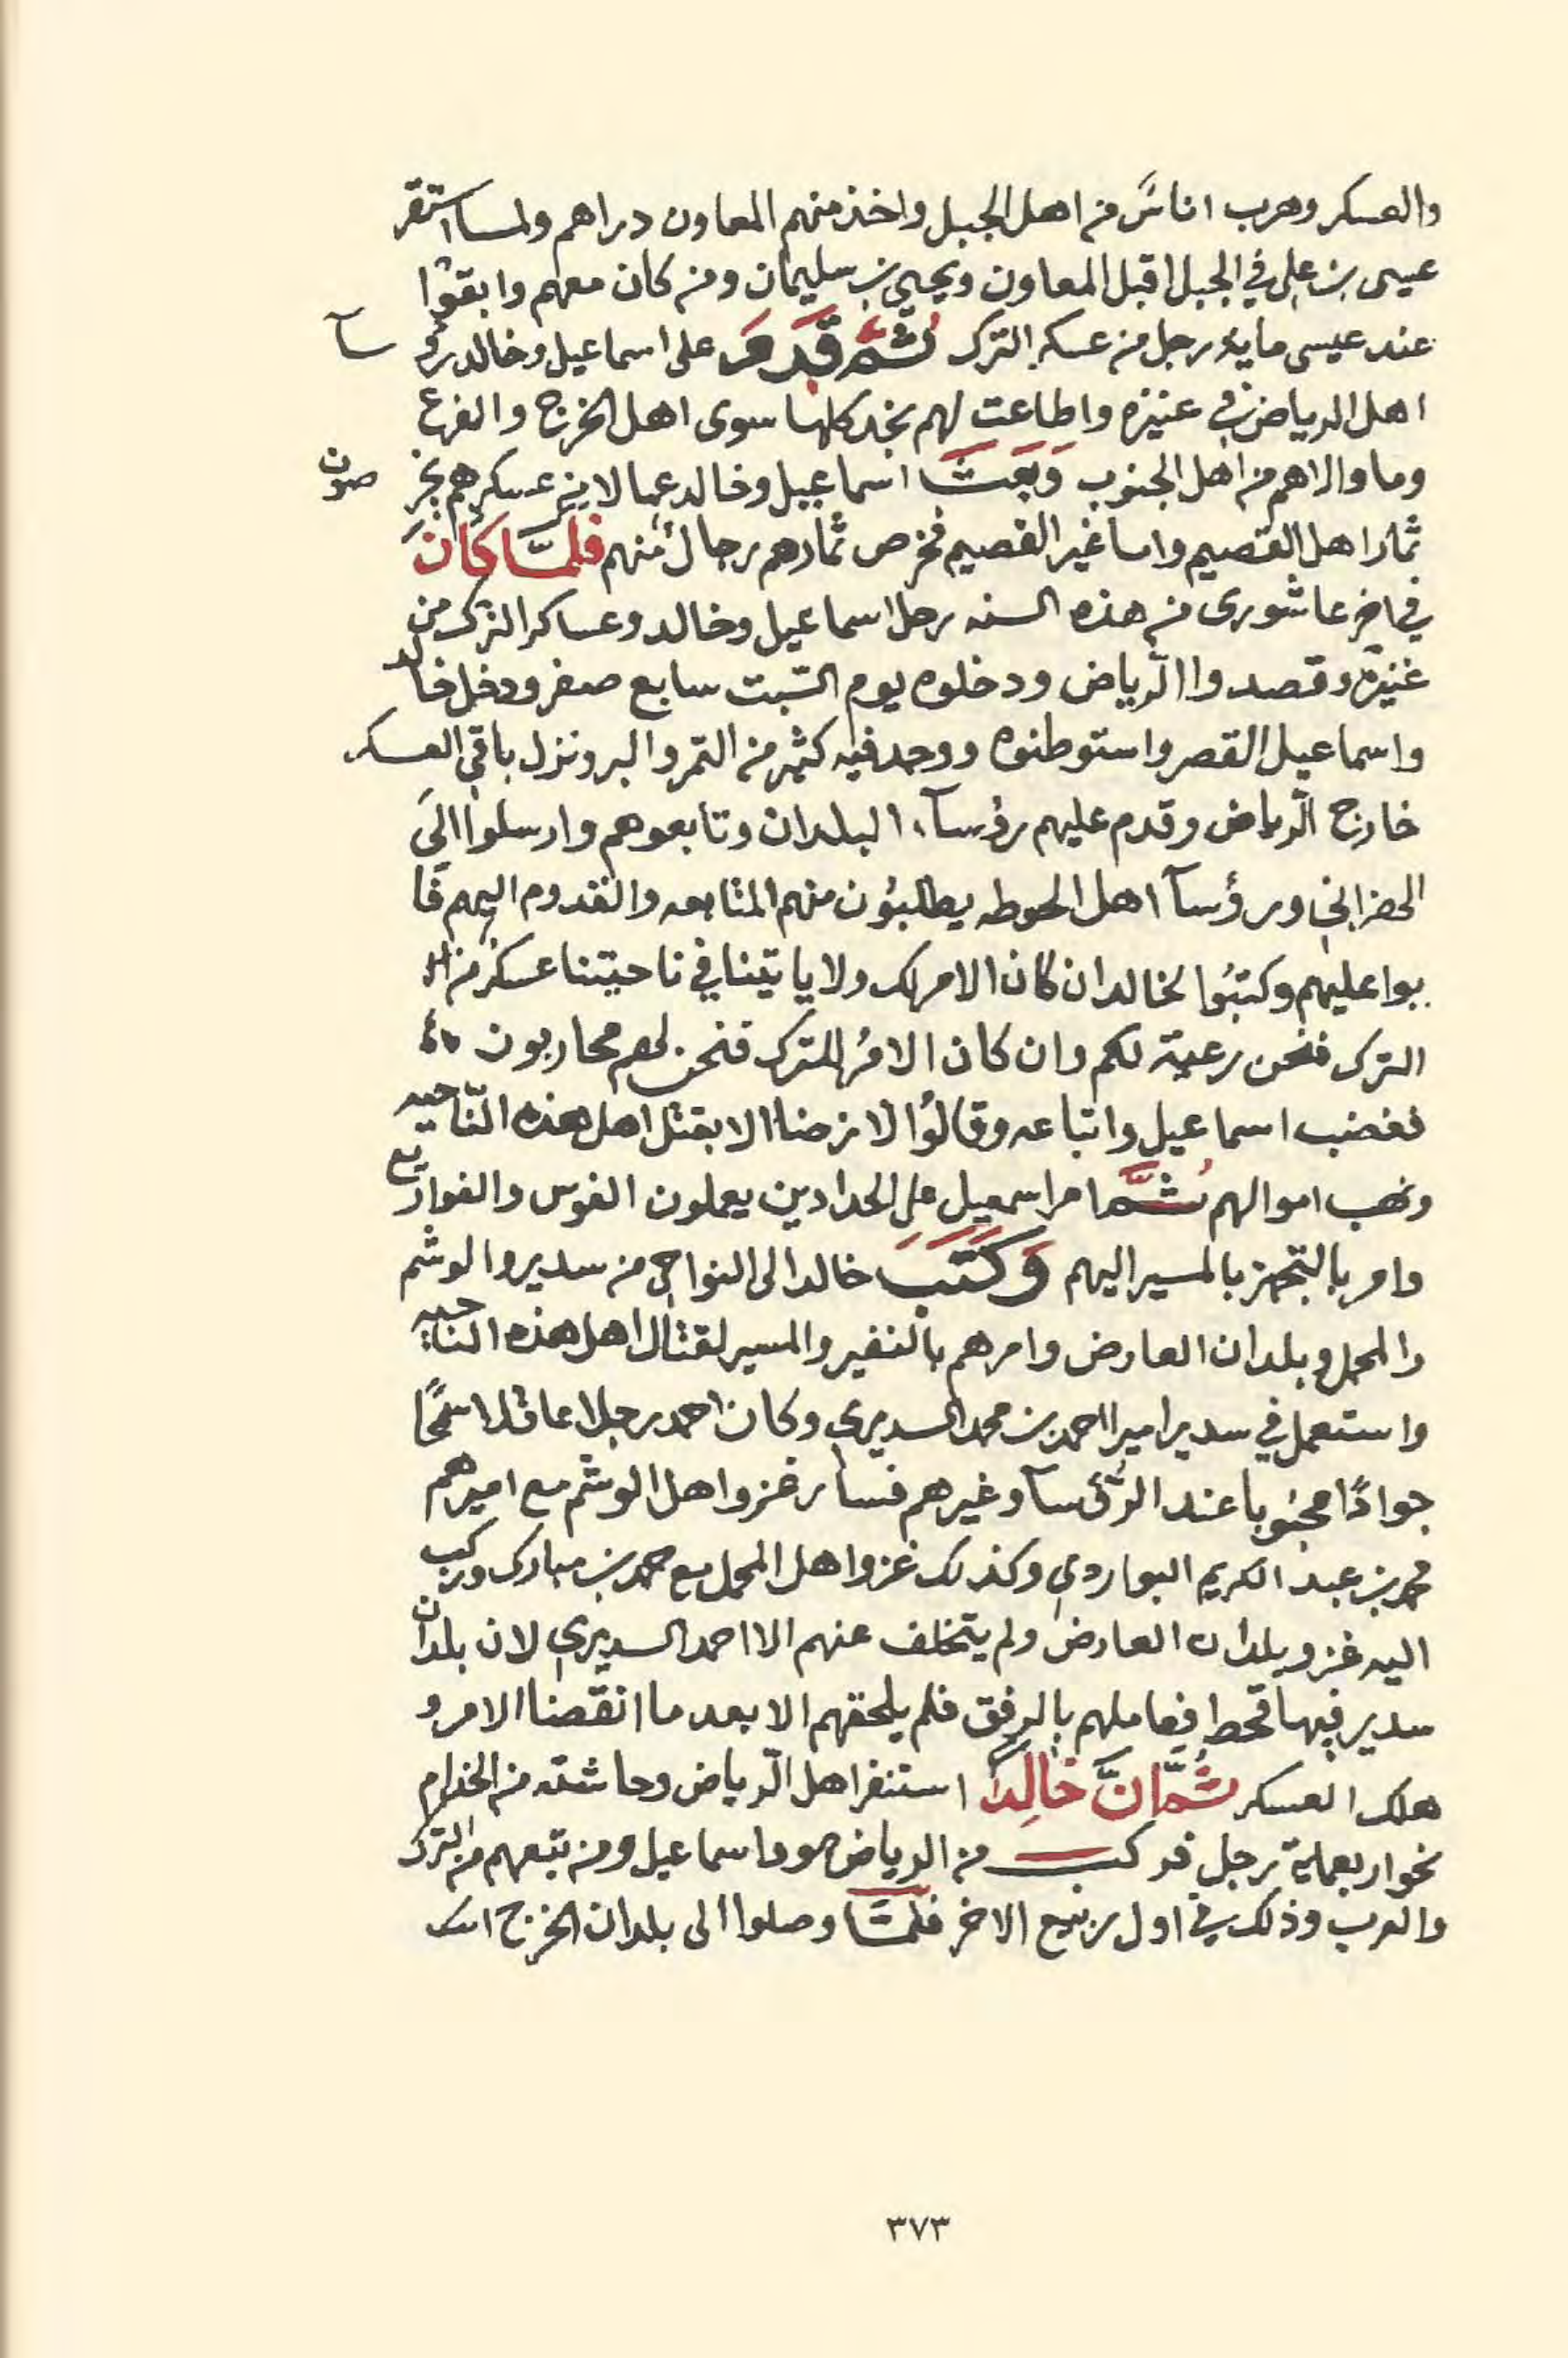 والعسكر وهرب اناسٌ من اهل الجبل واخذ منهم المعاون دراهم ولما استقر
عيسى بن علي في الجبل اقبل المعاون ويحيى بن سليمان ومن كان معهم وابقوا
عند عيسى ماية رجل من عسكر الترك ثُمَّ قَدِمَ على اسماعيل وخالد رؤ سآ
اهل الرياض في عنيزه واطاعت لهم نجد كلها سوى اهل الخرج والفرع
وما والاهم من اهل الجنوب وَبَعَثَ اسماعيل وخالد عمالا من عسكرهم يخر صون
ثمار اهل القصيم واما غير القصيم فخرص ثمارهم رجال منهم فَلَمَّا كَانَ
في اخر عاشورى من هذه السنه رحل اسماعيل وخالد وعساكر الترك من
عنيزه وقصدوا الرّياض ودخلوه يوم السّبت سابع صفر ودخل خالد
واسماعيل القصر واستوطنوه ووجد فيه كثير من التمر والبر ونزل باقي العسكر
خارج الرّياض وقدم عليهم رؤسآء البلدان وتابعوهم وارسلوا الى
الهزاني ورؤسآ اهل الحوطه يطلبُون منهم المتابعه والقدوم اليهم فَا
بوا عليهم وكتبُوا لخالد ان كان الامر لك ولا ياتينا في ناحيتنا عسكر من
الترك فنحن رعية لكم وان كان الامرُ للترك فنحن لهم محاربون
فغضب اسماعيل واتباعه وقالوُا لا نرضا الا بقتل اهل هذه النّاحيه
ونهب اموالهم ثُمَّ امر اسمعيل على الحدادين يعملون الفوس والفواريع
وامر بالتجهز بالمسير اليهم وَكَتَبَ خالد الى النواحي من سدير والوشم
والمحمل وبلدان العارض وامرهم بالنفير والمسير لقتال اهل هذه الناحيه
واستعمل في سدير اميرا احمد بن محمد السديري وكان احمد رجلا عاقلا سمحًا
جوادًا محبُوبا عند الرؤسآ وغيرهم فسار غزوا اهل الوشم مع اميرهم
محمد بن عبد الكريم البواردي وكذلك غزوا اهل المحمل مع حمد بن مبارك وركب
اليه غزو بلدان العارض ولم يتخلف عنهم الا احمد السديري لان بلدان
سدير فيها قحط فعاملهم بالرفق فلم يلحقهم الا بعد ما انقضا الامر و
هلك العسكر ثُمَّ انَّ خَالِداً استنفر اهل الرّياض وحاشته من الخدام
نحو اربعماية رجل فركب من الرياض هو واسماعيل ومن تبعهم من الترك
والعرب وذلك في اول ربيع الاخر فَلَمَّا وصلوا الى بلدان الخرج
٣٧٣